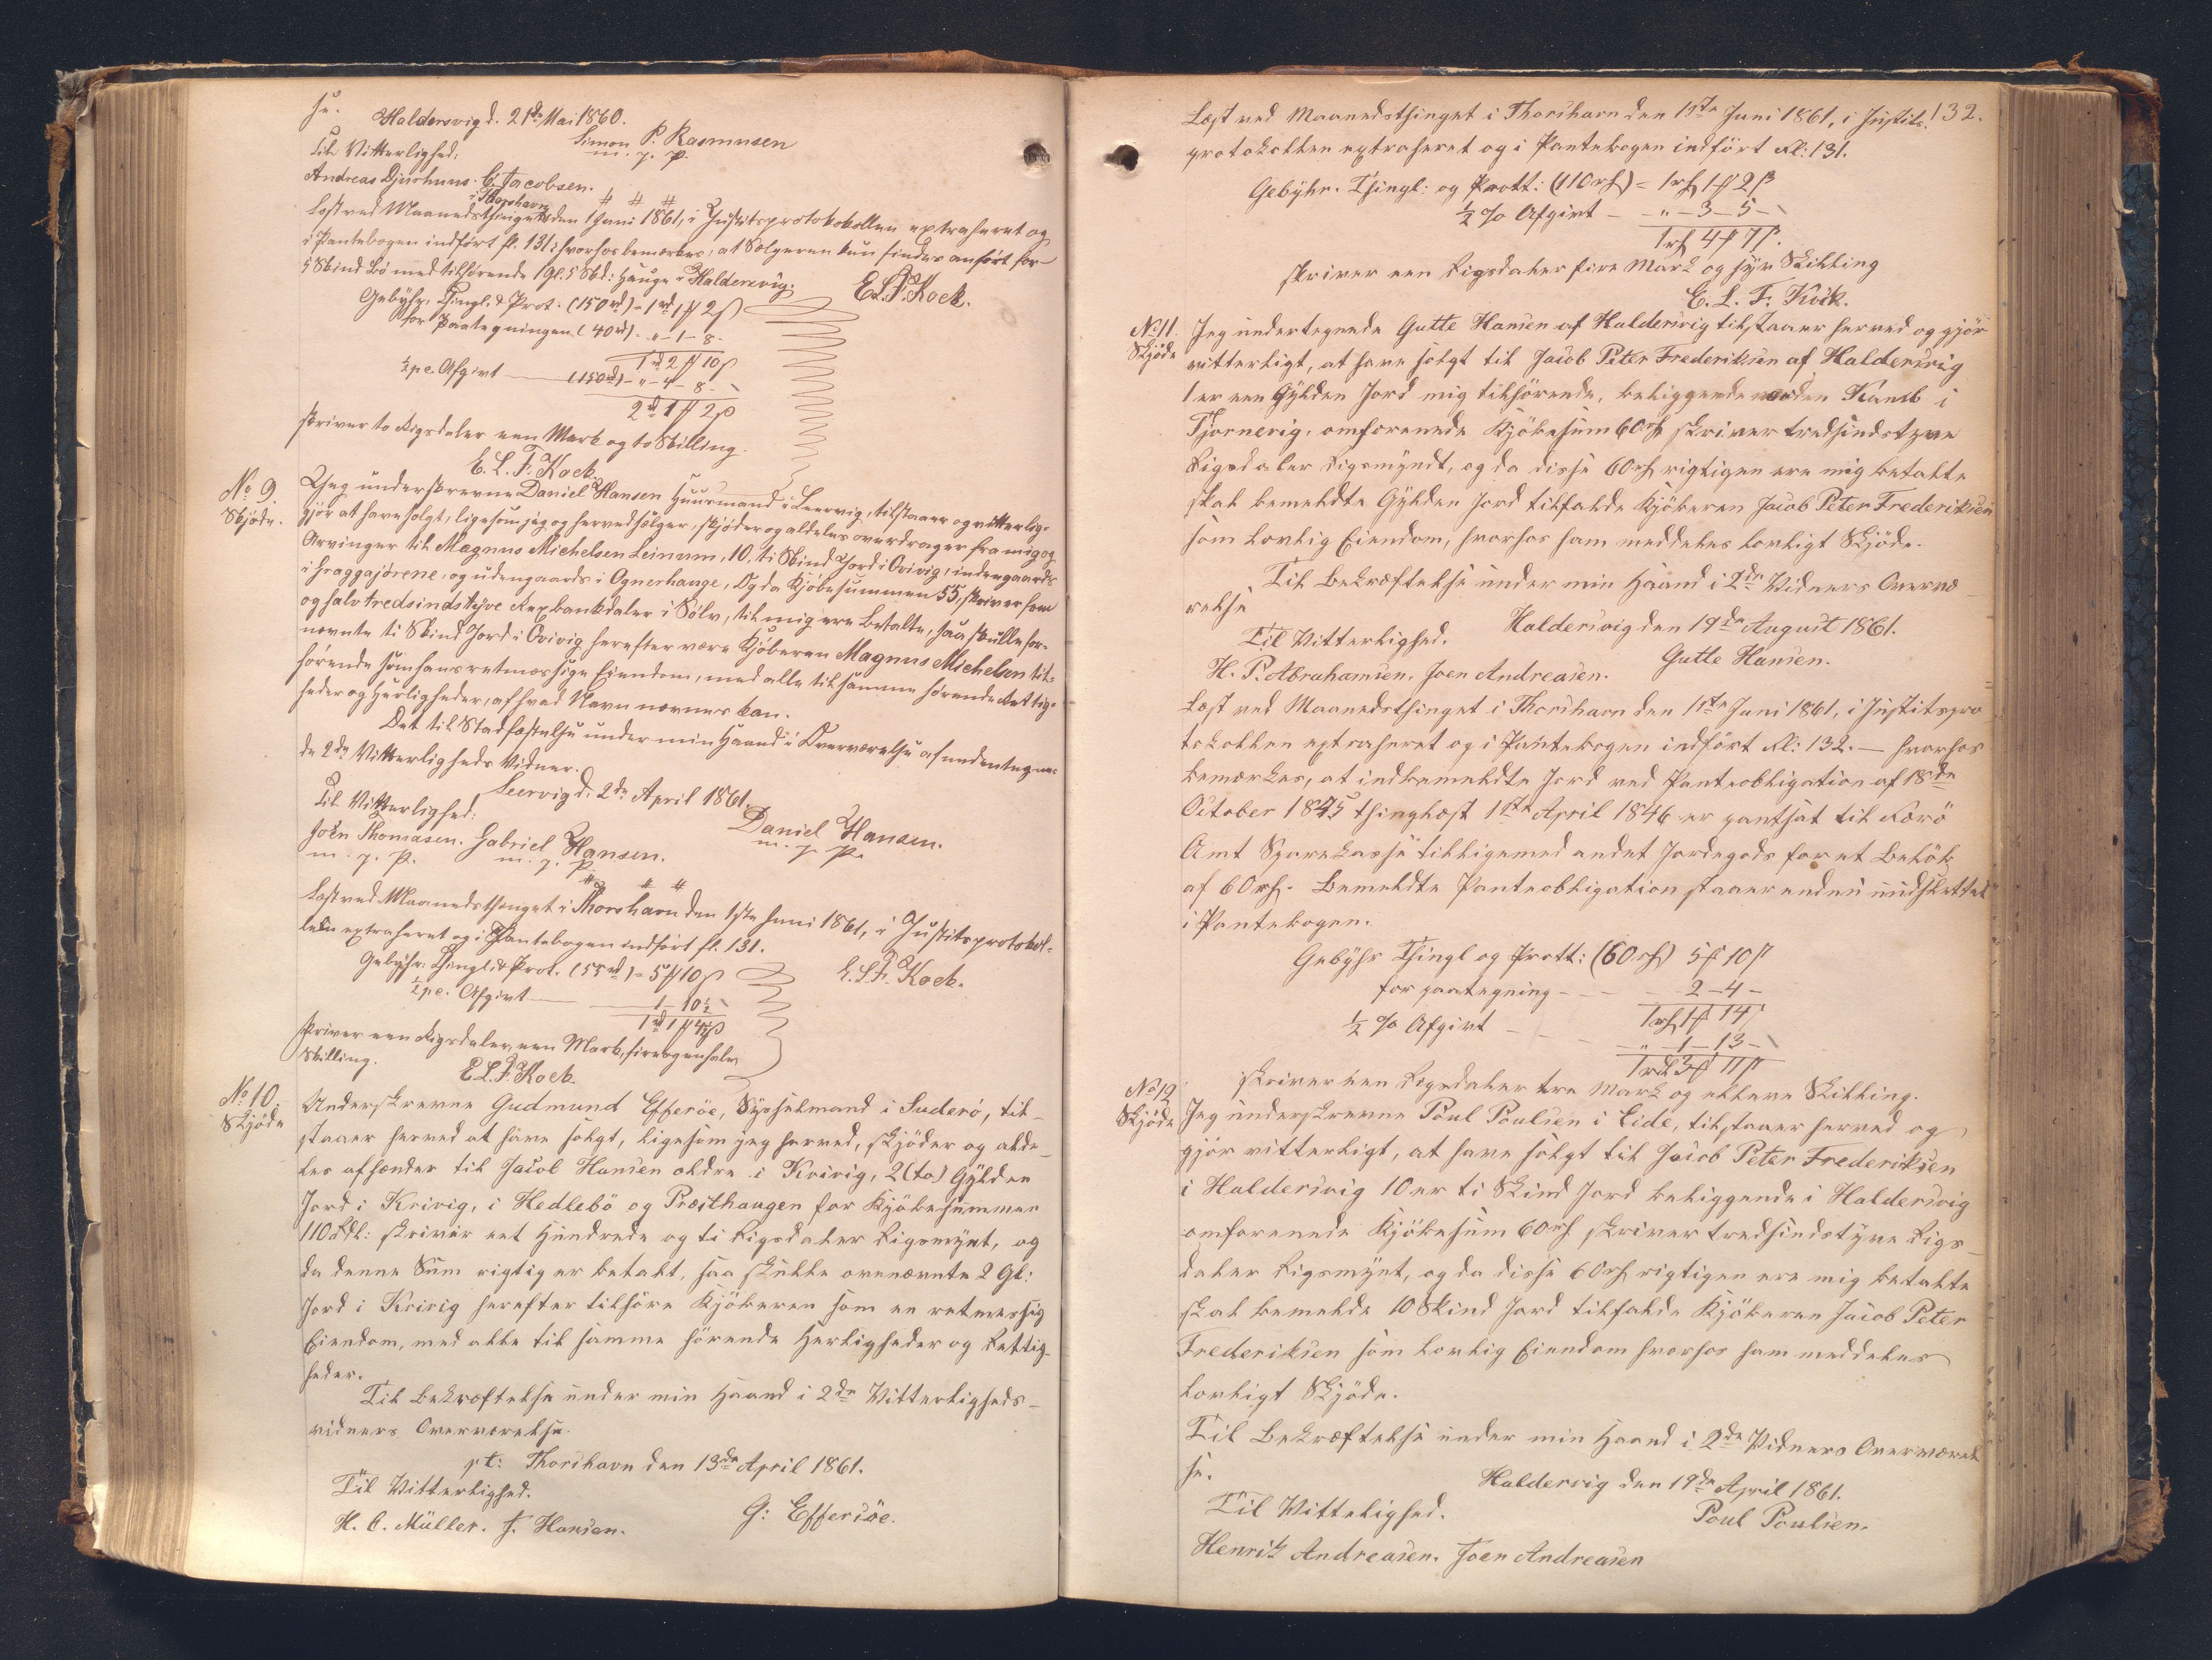 se.
Haldersvig d. 21de Mai 1860.
Simon P. Rasmussen
m. f. P.
Til Vitterlighed:
Andreas Djurhuus. C. Jacobsen.
i Thorshavn
Læst ved Maanedsthinget den 1 Juni 1861, i Justitsprotokokollen extraheret og
i Pantebogen indført fl. 131; hvorhos bemærkes, at Sælgeren kun findes anført for
5 Skind Bø med tilhørende 1 Gl. 5 Skd: Hauge i Haldersvig.
E.L.F. Kock.
Gebyhr, Thingl. & Prot. (150 rd) = 1 rd 1 ß 2 ß
for Paategningen (40 rd) - „ - 1 - 8 -
1 rd 2 ß 10 ß
½ pc. Afgivt — (150 rd) - „ - 4 - 8 -
2 rd 1 ß 2 ß
skriver to Rigsdaler een Mark og to Skilling.
E. L. F. Kock.
No 9.
Skjøde.
Jeg underskrevne Daniel Hansen Huusmand i Leervig, tilstaaer og vitterlig-
gjør at have solgt, ligesom jeg og herved sælger, skjøder og aldeles overdrager fra mig og
Arvinger til Magnus Michelsen Leinum, 10. ti Skind Jord i Qvivig, indengaards
i Fraggajørene, og udengaards i Ognerhauge, Og da Kjøbesummen 55, skriver fem
og halvtredsindstyve Rexbankdaler i Sølv, til mig ere betalte, saa skulle for-
nævnte ti Skind Jord i Qvivig herefter være Kjøberen Magnus Michelsen til-
hørende som hans retmæssige Eiendom, med alle til samme hørende Rettig-
heder og Herligheder, af hvad Navn nævnes kan.
Det til Stadfæstelse under min Haand i Overværelse af undertegne-
de 2de Vitterligheds Vidner.
Leervig d. 2de April 1861.
Til Vitterlighed:
Daniel Hansen.
m. f. P.
Joen Thomasen. Gabriel Hansen.
m. f. P. m. f. P.
Læst ved Maanedsthinget i Thorshavn den 1ste Juni 1861, i Justitsprotokol-
len extraheret og i Pantebogen indført fl. 131.
Gebyhr: Thingl. & Prot. (55 rd) = 5 ß 10 ß
E.L.F. Kock.
½ pc. Afgivt — 1 10½
1 rd 1 ß 4½ ß
skriver een Rigsdaler, een Mark, fire og en halv
Skilling.
E.L.F. Kock.
No 10.
Skjøde
Underskrevne Gudmund Effersøe, Sysselmand i Suderø, til-
staaer herved at have solgt, ligesom jeg herved, skjøder og alde-
les afhænder til Jacob Hansen ældre i Kvivig, 2 (to) Gylden
Jord i Kvivig, i Hedlebö og Præsthaugen for Kjöbesummen
110 Rdl: skriver eet Hundrede og ti Rigsdaler Rigsmynt, og
da denne Sum rigtig er betalt, saa skulle ovennævnte 2 Gl:
Jord i Kvivig herefter tilhöre Kjöberen som en retmessig
Eiendom, med alle til samme hörende Herligheder og Rettig-
heder.
Til Bekræftelse under min Haand i 2de Vitterligheds-
vidners Overværelse.
pt: Thorshavn den 13de April 1861.
Til Vitterlighed.
H. C. Müller. J. Hansen.
G: Effersöe.
132.
Læst ved Maanedsthinget i Thorshavn den 1ste Juni 1861, i Justits-
protokollen extraheret og i Pantebogen indfört Fl: 131.
Gebyhr. Thingl: og Prott: (110 rd) = 1 rd 1 ß 2 ß
½ % Afgivt - „ - 3 - 5 -
1 rd 4 ß 7 ß.
skriver een Rigsdaler fire Mark og syv Skilling
E. L. F. Kock.
No 11.
Skjöde
Jeg undertegnede Gutte Hansen af Haldersvig tilstaaer herved og gjör
vitterligt, at have solgt til Jacob Peter Frederiksen af Haldersvig
1 er een Gylden Jord mig tilhörende, beliggende norden Kamb i
Tjornevig, omforenede Kjöbesum 60 rd skriver tredsindstyve
Rigsdaler Rigsmyndt, og da disse 60 rd rigtigen ere mig betalte
skal bemeldte Gylden Jord tilfalde Kjöberen Jacob Peter Frederiksen
som lovlig Eiendom, hvorhos ham meddeles lovligt Skjöde.
Til Bekræftelse under min Haand i 2de Vidners Overvæ-
relse
Haldersvig den 19de August 1861.
Til Vitterlighed.
Gutte Hansen.
H. P. Abrahamsen. Joen Andreasen.
Læst ved Maanedsthinget i Thorshavn den 1ste Juni 1861, i Justitspro
tokollen extraheret og i Pantebogen indfört Fl: 132. — hvorhos
bemærkes, at indbemeldte Jord ved Panteobligation af 18de
October 1845 thinglæst 1ste April 1846 er pantsat til Færö
Amt Sparekasse tilligemed andet Jordegods for et Belöb
af 60 rd. Bemeldte Panteobligation staaer endnu uudslettet
i Pantebogen.
Gebyhr Thingl og Prott: (60 rd) 5 ß 10 ß
for paategning - - - 2 - 4 -
1 rd 1 ß 14 ß
½ % Afgivt - - - „ - 1 - 13 -
1 rd 3 ß 11 ß
skriver een Rigsdaler tre Mark og elleve Skilling.
No 12
Skjöde
Jeg underskrevne Poul Poulsen i Eide, tilstaaer herved og
gjör vitterligt, at have solgt til Jacob Peter Frederiksen
i Haldersvig 10 er ti Skind Jord beliggende i Haldersvig
omforenede Kjöbesum 60 rd skriver tredsindstyve Rigs-
daler Rigsmynt, og da disse 60 rd rigtigen ere mig betalte
skal bemeldte 10 Skind Jord tilfalde Kjöberen Jacob Peter
Frederiksen som lovlig Eiendom hvorhos ham meddeles
lovligt Skjöde.
Til Bekræftelse under min Haand i 2de Vidners Overværel
se.
Haldersvig den 19de April 1861.
Til Vittelighed.
Poul Poulsen.
Henrik Andreasen. Joen Andreasen